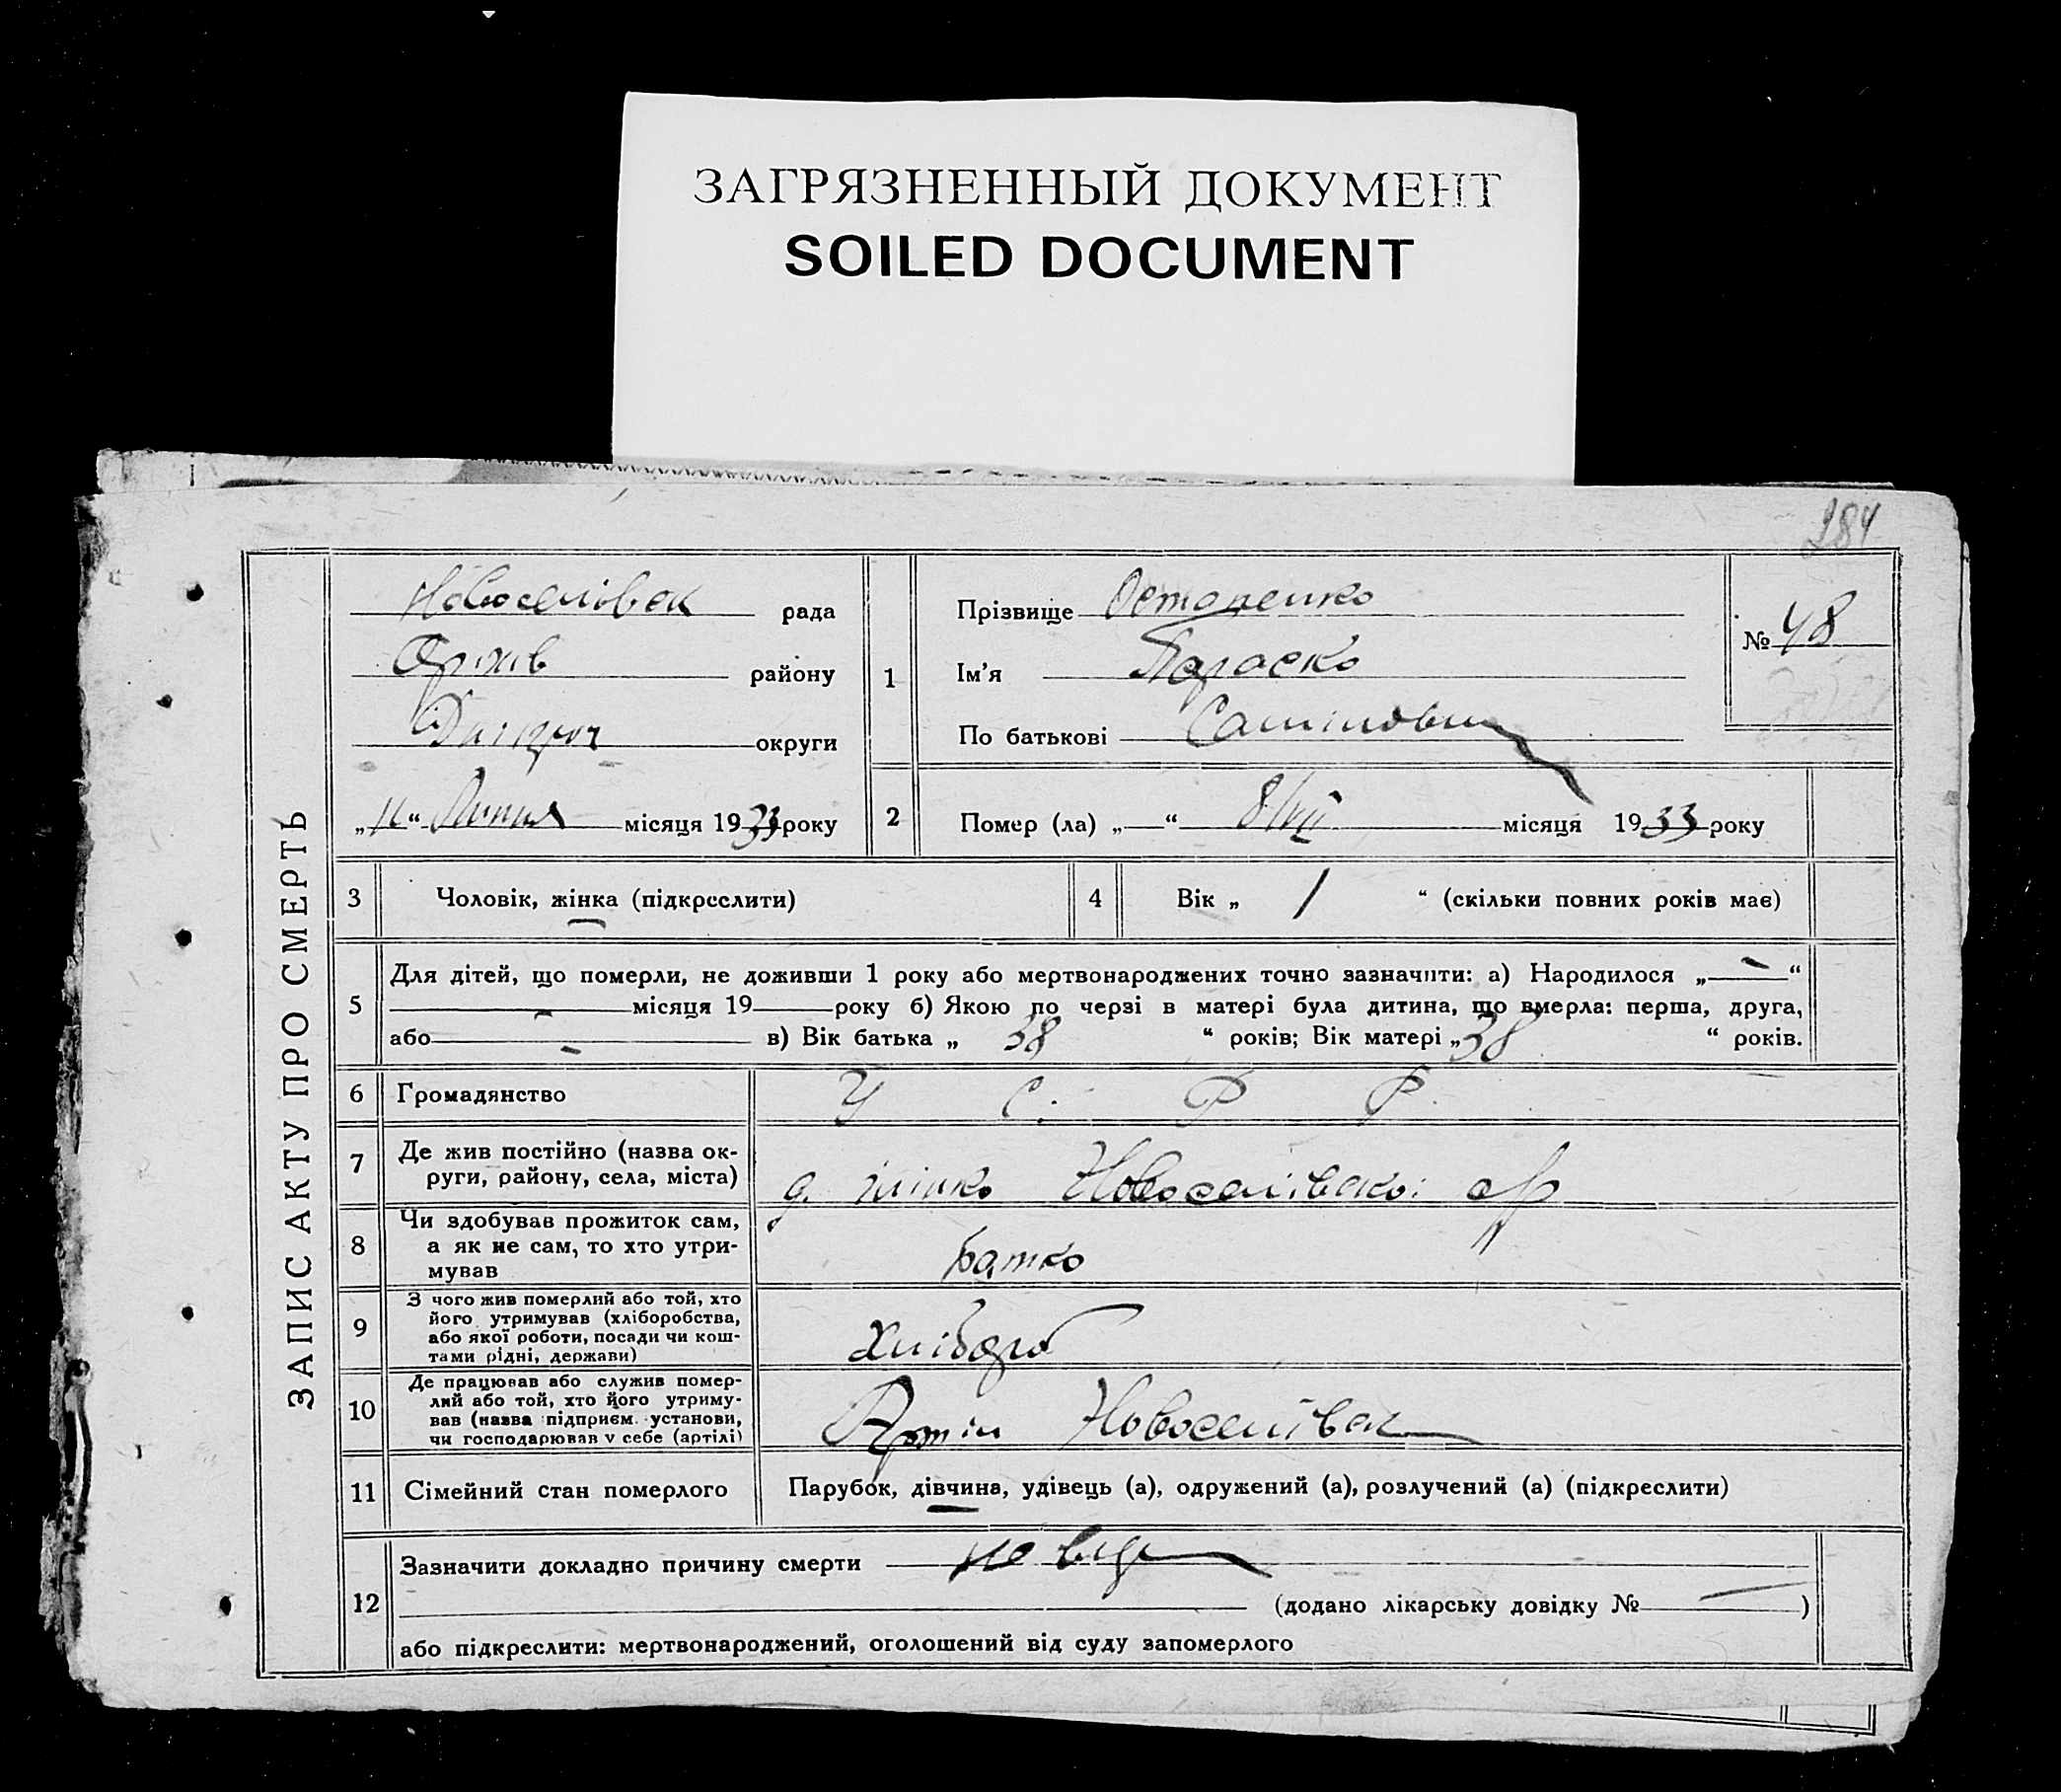 ЗАГРЯЗНЕННЫЙ ДОКУМЕНТ
SOILED DOCUMENT
284
ЗАПИС АКТУ ПРО СМЕРТЬ
Новоселівск рада
Оріхів району
округи
„11“ Липня місяця 1933 року
1
Прізвище Остапенко
Ім’я Параска
По батькові
№ 48
2
Помер (ла) „—“ 8/VII місяця 1933 року
3
Чоловік, жінка (підкреслити)
4
Вік „ 1 “ (скільки повних років має)
5
Для дітей, що померли, не доживши 1 року або мертвонароджених точно зазначити: а) Народилося „—“
— місяця 19 року б) Якою по черзі в матері була дитина, що вмерла: перша, друга,
або — в) Вік батька „ 38 “ років; Вік матері „ 38 “ років.
6
Громадянство
У С. Р Р.
7
Де жив постійно (назва ок-
руги, району, села, міста)
Новоселівської с/р
8
Чи здобував прожиток сам,
а як не сам, то хто утри-
мував
батко
9
З чого жив померлий або той, хто
його утримував (хліборобства,
або якої роботи, посади чи кош-
тами рідні, держави)
Хлібороб
10
Де працював або служив помер-
лий або той, хто його утриму-
вав (назва підприєм. установи,
чи господарював у себе (артілі)
Артіл Новоселівск
11
Сімейний стан померлого
Парубок, дівчина, удівець (а), одружений (а), розлучений (а) (підкреслити)
12
Зазначити докладно причину смерти
(додано лікарську довідку № — )
або підкреслити: мертвонароджений, оголошений від суду запомерлого